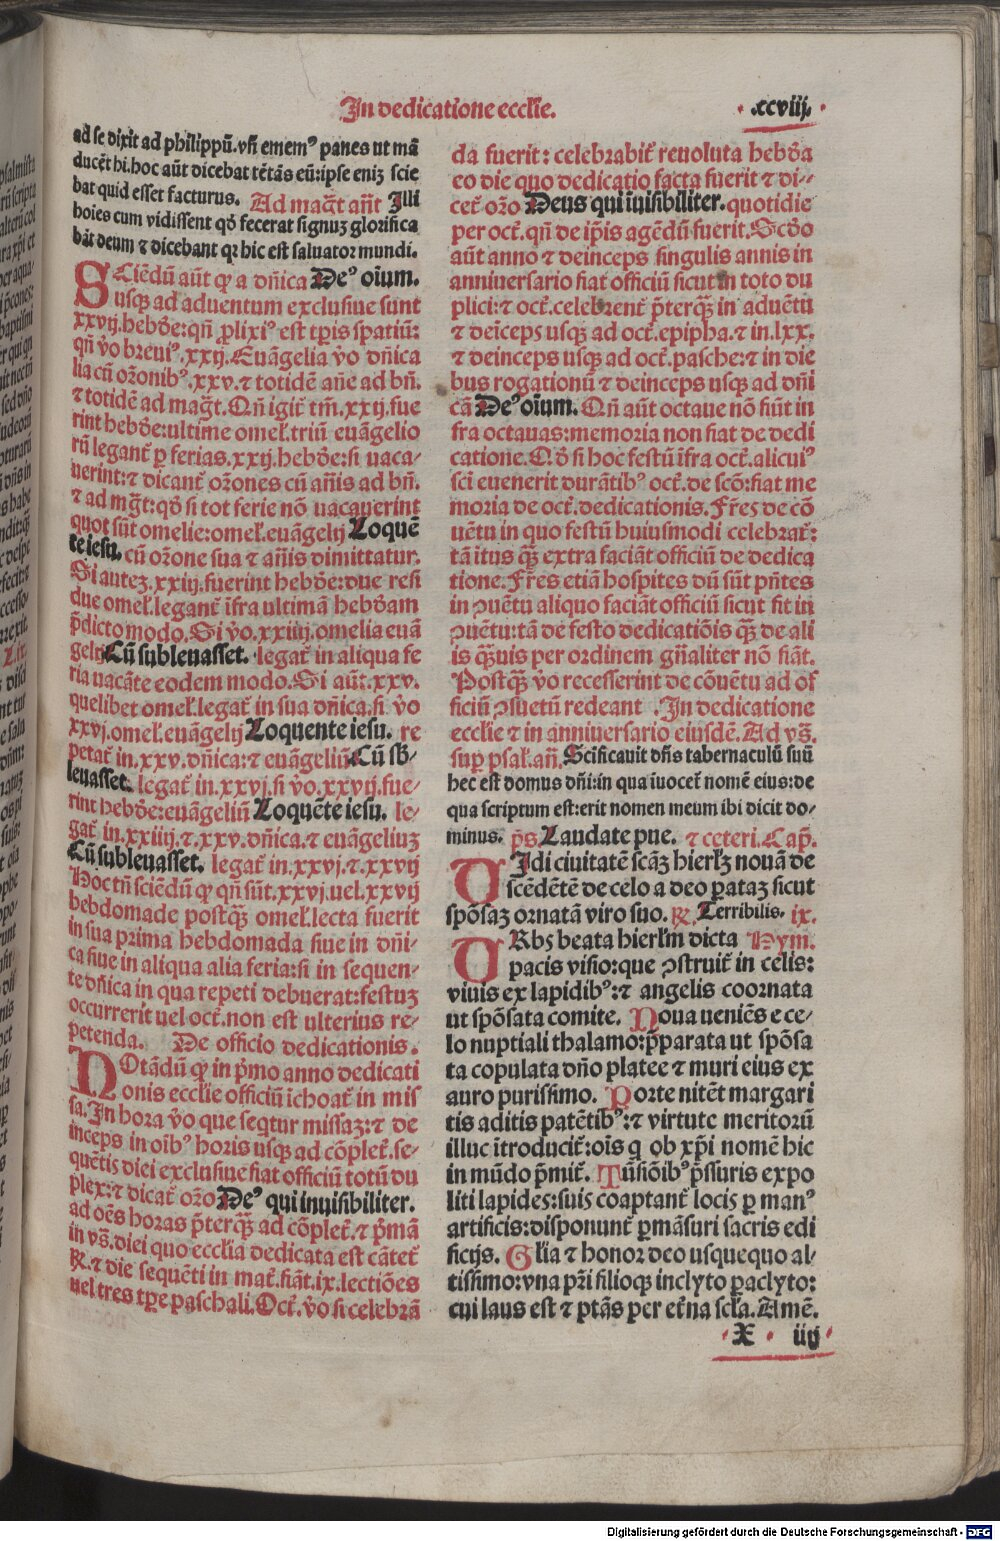 In dedicatione ecclīe.
.xcviij.
ad se dixit ad philippū.vn̄ ememꝰ panes ut mā
ducēt hi.hoc aūt dicebat tētās eū:ipse eniʒ scie
bat quid esset facturus. Ad mag̃t añt Illi
hoies cum vidissent qđ fecerat signuʒ glorifica
bāt deum ⁊ dicebant qꝛ hic est saluator mundi.
SCiēdū aūt ꝙ a dn̄ica Deꝰ oium.
usqꝫ ad aduentum exclusiue sunt
xxvij.hebđe:qn̄ ꝓlixiꝰ est tp̄is spatiū:
qn̄ v̄o breuiꝰ.xxij.Euāgelia v̄o dn̄ica
lia cū oꝛ̄onibꝰ.xxv.⁊ totidē añe ad bn̄.
⁊ totidē ad mag̃t.Qn̄ igit̃ tm̄.xxij.fue
rint hebđe:ultime omeł.triū euāgelio
rū legant̃ ꝑ ferias.xxij.hebđe:si uaca-
uerint:⁊ dicant̃ oꝛ̄ones cū añis ad bn̄.
⁊ ad mg̃t:qđ si tot ferie nō uacauerint
quot sūt omelie:omeł.euāgelij Loquē
te iesu. cū oꝛ̄one sua ⁊ añis dimittatur.
Si auteʒ.xxiij.fuerint hebđe:due resi
due omeł.legant̃ īfra ultimā hebđam
p̄dicto modo.Si v̄o.xxiiij.omelia euā
gelij Cū subleuasset. legat̃ in aliqua fe
ria uacāte eodem modo.Si aūt.xxv.
quelibet omeł.legat̃ in sua dn̄ica.si v̄o
xxvj.omeł.euāgelij Loquente iesu. re
petat̃ in.xxv.dn̄ica:⁊ euāgeliū Cū sb-
leuasset. legat̃ in.xxvj.si v̄o.xxvij.fue-
rint hebđe:euāgeliū Loquēte iesu. le-
gat̃ in.xxiiij.⁊.xxv.dn̄ica.⁊ euāgeliuʒ
Cū subleuasset. legat̃ in.xxvj.⁊.xxvij
Hoc tn̄ sciēdū ꝙ qn̄ sūt.xxvj.uel.xxvij
hebdomade postqꝫ omeł.lecta fuerit
in sua prima hebdomada siue in dn̄i-
ca siue in aliqua alia feria:si in sequen-
te dn̄ica in qua repeti debuerat:festuʒ
occurrerit uel oct̃.non est ulterius re-
petenda. De officio dedicationis.
NOtādū ꝙ in p̄mo anno dedicati
onis ecclie officiū īchoat̃ in mis
sa.In hora v̄o que seqtur missaʒ:⁊ de
inceps in oībꝰ horis usqꝫ ad cōplet̃.se-
quētis diei exclusiue fiat officiū totū du
plex:⁊ dicat̃ oꝛ̄o Deꝰ qui inuisibiliter.
ad oēs horas p̄terqꝫ ad cōplet̃.⁊ p̄mā
in vs̄.diei quo ecclia dedicata est cātet̃
℟.⁊ die sequēti in mat̃.fiāt.ix.lectiōes
uel tres tꝑe paschali.Oct̃.v̄o si celebrā
da fuerit:celebrabit̃ reuoluta hebđa
eo die quo dedicatio facta fuerit ⁊ di-
cet̃ oꝛ̄o Deus qui īuisibiliter. quotidie
per oct̃.qn̄ de ip̄is agēdū fuerit.Scđo
aūt anno ⁊ deinceps singulis annis in
anniuersario fiat officiū sicut in toto du
plici:⁊ oct̃.celebrent̃ p̄terqꝫ in aduētu
⁊ deīceps usqꝫ ad oct̃.epipha.⁊ in.lxx.
⁊ deinceps usqꝫ ad oct̃.pasche:⁊ in die
bus rogationū ⁊ deinceps usqꝫ ad dn̄i
cā Deꝰ oium. Qn̄ aūt octaue nō fiūt in
fra octauas:memoria non fiat de dedi
catione.Qđ si hoc festū īfra oct̃.alicuiꝰ
sc̄i euenerit durātibꝰ oct̃.de scō:fiat me
moria de oct̃.dedicationis.Fr̄es de cō
uētu in quo festū huiusmodi celebrat̃:
tā itus qꝫ extra faciāt officiū de dedica
tione.Fr̄es etiā hospites dū sūt pn̄tes
in ꝯuētu aliquo faciāt officiū sicut fit in
ꝯuētu:tā de festo dedicatiōis qꝫ de ali
is qꝫuis per ordinem gn̄aliter nō fiāt.
Postqꝫ v̄o recesserint de cōuētu ad of
ficiū ꝯsuetū redeant In dedicatione
ecclie ⁊ in anniuersario eiusdē. Ad vs̄.
sup psał.añ. Scificauit dn̄s tabernaculū suū
hec est domus dn̄i:in qua īuocet̃ nomē eius:de
qua scriptum est:erit nomen meum ibi dicit do-
minus. p̄s. Laudate pue. ⁊ ceteri. Cap̄.
VIdi ciuitatē scāʒ hierłʒ nouā de
scēdētē de celo a deo ꝑataʒ sicut
spōsaʒ ornatā viro suo. ℟. Terribilis. ix.
VRbs beata hierłm dicta Hym.
pacis visio:que ꝯstruit̃ in celis:
viuis ex lapidibꝰ:⁊ angelis coornata
ut spōsata comite. Noua ueniēs e ce-
lo nuptiali thalamo:p̄parata ut spōsa
ta copulata dn̄o platee ⁊ muri eius ex
auro purissimo. Porte nitēt margari
tis aditis patētibꝰ:⁊ virtute meritorū
illuc ītroducit̃:oīs q ob xp̄i nomē hic
in mūdo p̄mit̃. Tūsiōibꝰ p̄ssuris expo
liti lapides:suis coaptant̃ locis ꝑ manꝰ
artificis:disponunt̃ ꝑmāsuri sacris edi
ficijs. Glīa ⁊ honor deo usquequo al-
tissimo:vna pr̄i filioqꝫ inclyto ꝑaclyto:
cui laus est ⁊ ptās per et̃na scła.Amē.
X iiij
Digitalisierung gefördert durch die Deutsche Forschungsgemeinschaft - DFG